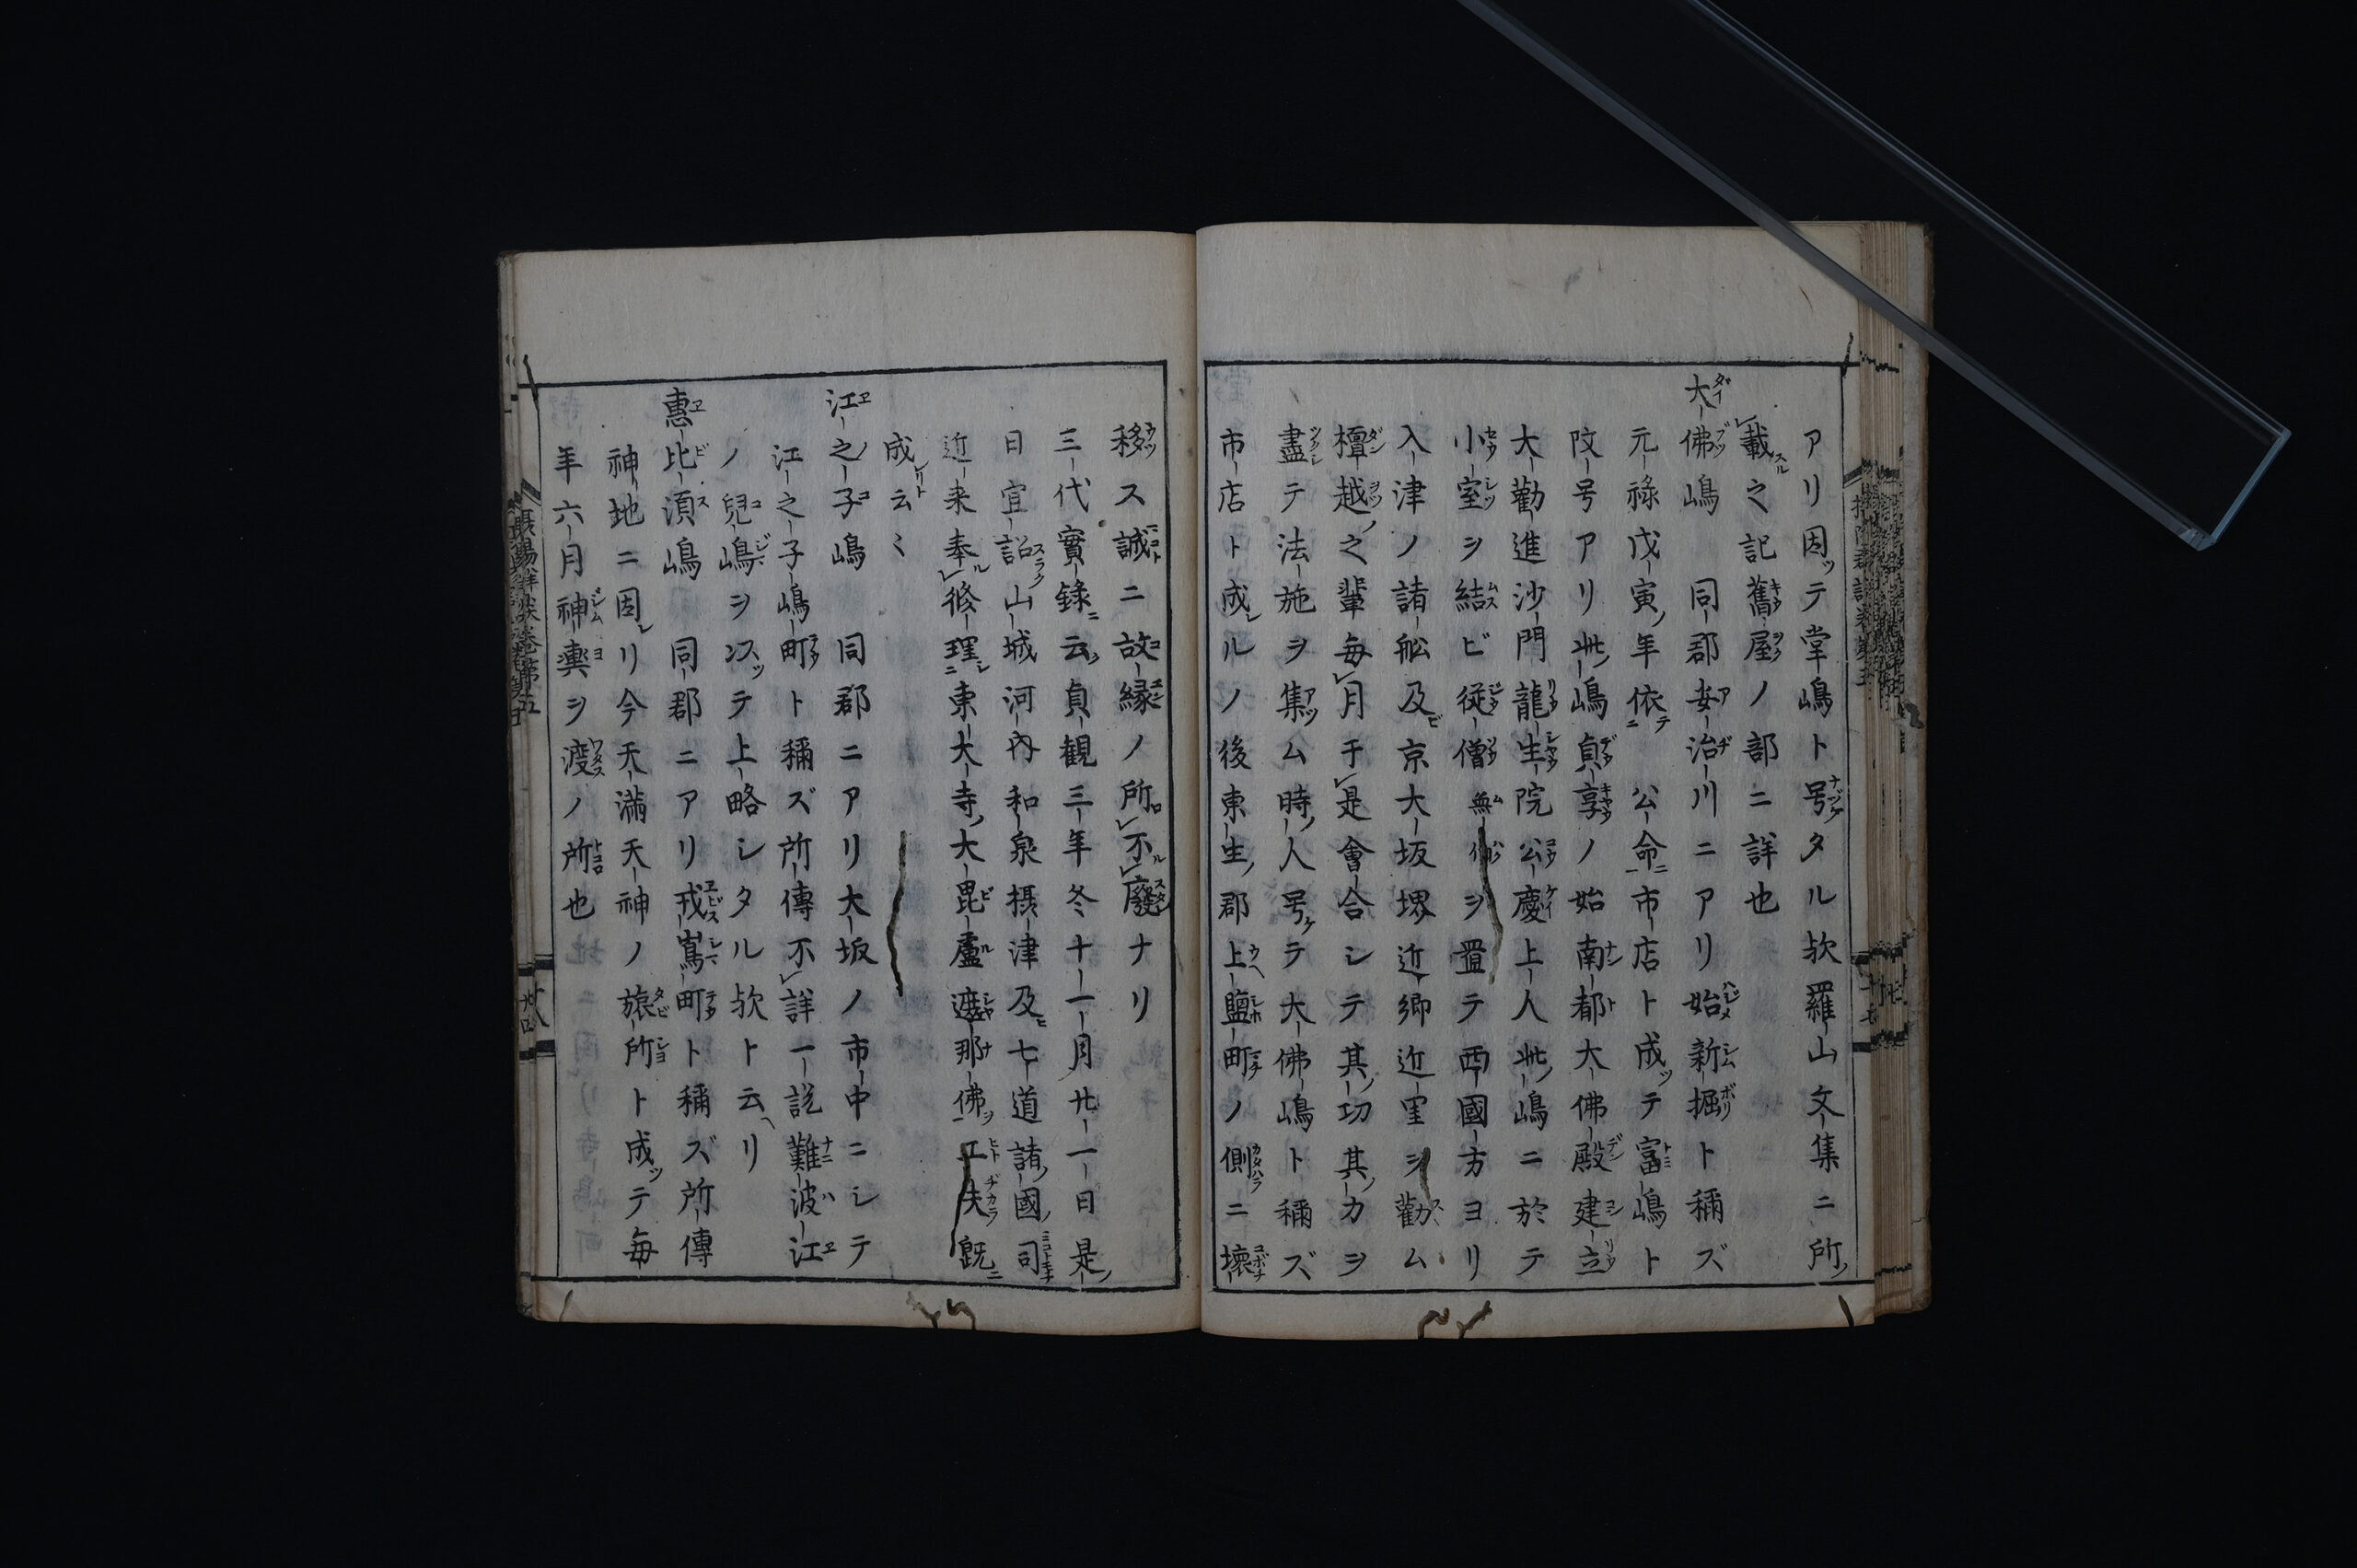 アリ因ッテ堂嶋ト号タル欤羅山文集ニ所
載之記舊屋ノ部ニ詳也
大佛嶋　同郡安治川ニアリ始新堀ト稱ズ
元祿戊寅年依　公命市店ト成テ富嶋ト
改号アリ此嶋貞享ノ始南都大佛殿建立
大勸進沙門龍生院公慶上人此嶋ニ於テ
小室ヲ結ビ従僧無ヲ置テ西國方ヨリ
入津ノ諸舩及京大坂堺近郷近里ヲ勸ム
檀越之輩毎月于是會合シテ其功其力ヲ
盡テ法施ヲ集ム時人号テ大佛嶋ト稱ズ
市店ト成ルノ後東生郡上鹽町ノ側ニ壊
移ス誠ニ故縁ノ所不廢ナリ
三代實錄云貞観三年冬十一月廿一日是
日宜詔山城河内和泉摂津及七道諸國司
近来奉修理東大寺大毘盧遮那佛工夫既
成云〻
江之子嶋　同郡ニアリ大坂ノ市中ニシテ
江之子嶋町ト稱ズ所傳不詳一説難波江
ノ兒嶋ヲ以テ上略シタル欤ト云リ
惠比須嶋　同郡ニアリ戎嶌町ト稱ズ所傳
神地ニ因リ今天満天神ノ旅所ト成ッテ毎
年六月神輿ヲ渡ノ所也